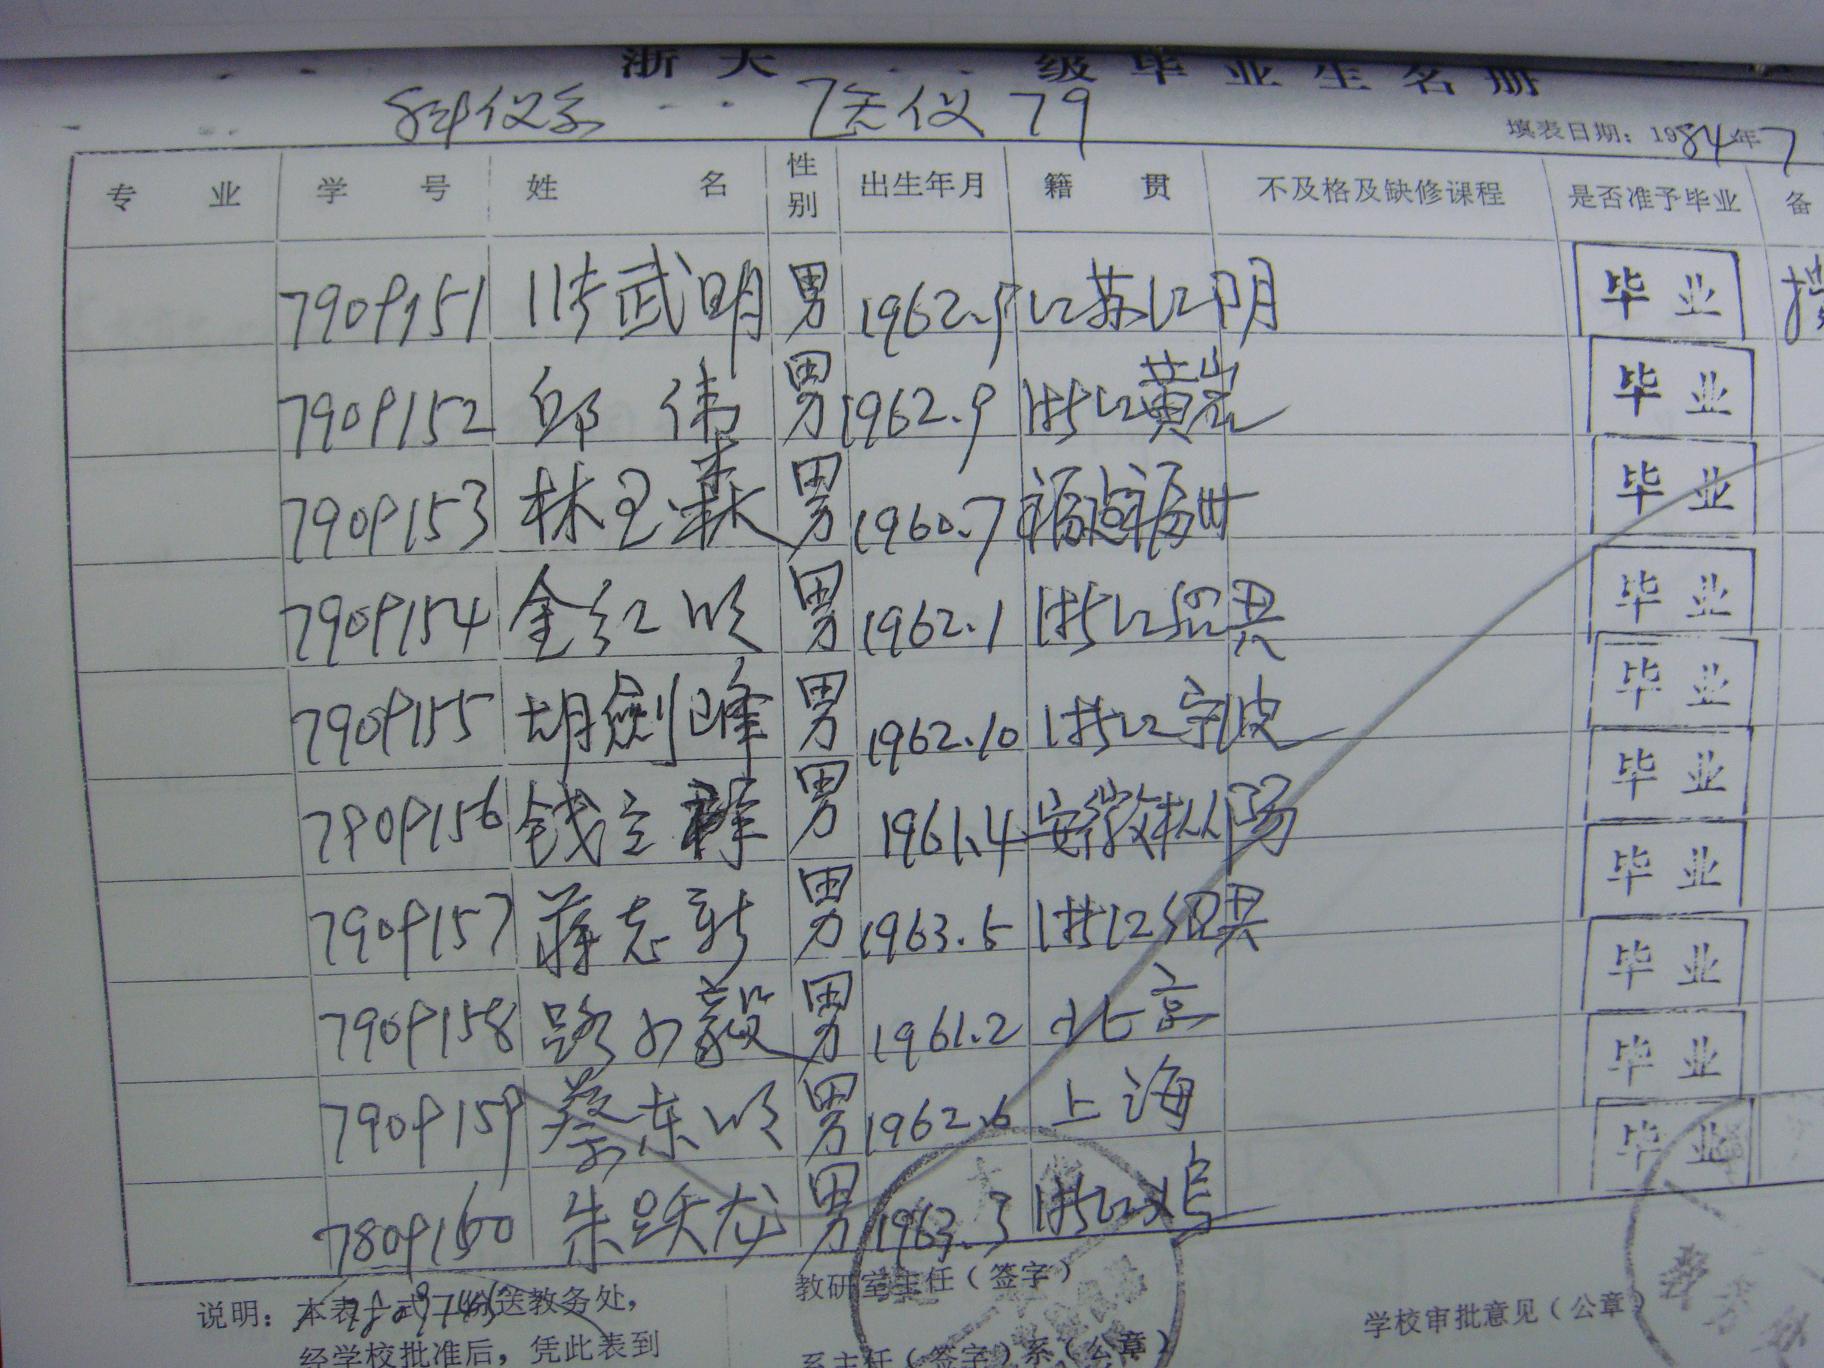 浙大 级毕业生名册
科仪系 医仪79
填表日期：1984年7
专业 学号 姓名 性别 出生年月 籍贯 不及格及缺修课程 是否准予毕业 备
7909151 许武明 男 1962.5 江苏江阴 毕业
7909152 邱伟 男 1962.9 浙江黄岩 毕业
7909153 林玉森 男 1960.7 福建福州 毕业
7909154 金红 男 1962.1 浙江绍兴 毕业
7909155 胡剑峰 男 1962.10 浙江宁波 毕业
7909156 钱立群 男 1961.4 安徽枞阳 毕业
7909157 蒋志新 男 1963.5 浙江绍兴 毕业
7909158 路小毅 男 1961.2 北京 毕业
7909159 蔡东 男 1962.6 上海 毕业
7809160 朱跃龙 男 1963.3 浙江义乌 毕业
说明：本表一式 份送教务处， 教研室主任（签字） 学校审批意见（公章）
经学校批准后，凭此表到 系主任（签字）系（公章）